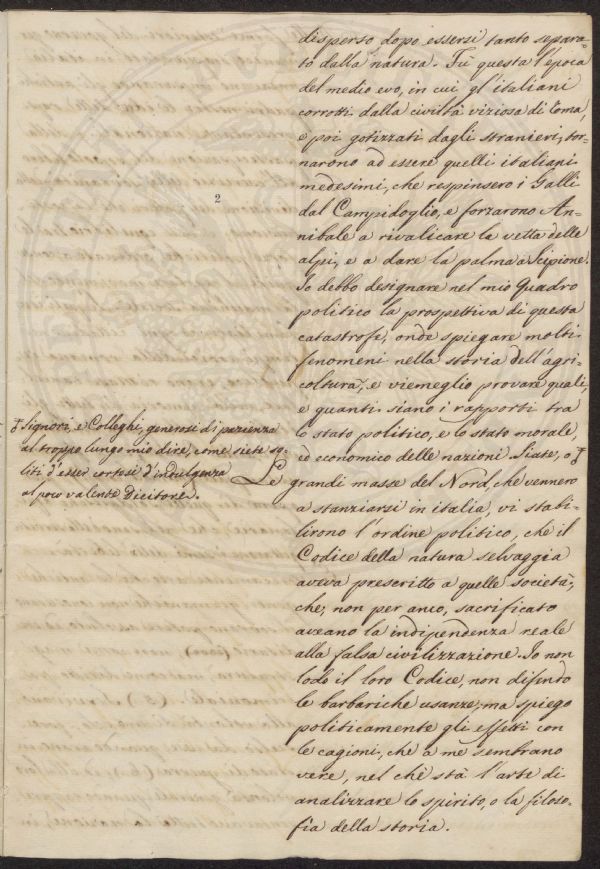 disperso dopo essersi tanto separa-
to dalla natura. Fù questa l'epoca
del medio evo, in cui gl'italiani
corrotti dalla civiltà viziosa di Roma,
e poi gotizzati dagli stranieri, tor-
narono ad essere quelli italiani
medesimi, che respinsero i Galli
dal Campidoglio, e forzarono An-
nibale a rivalicare la vetta delle
alpi, e a dare la palma a Scipione.
Io debbo designare nel mio Quadro
politico la prospettiva di questa
catastrofe, onde spiegare molti
fenomeni nella storia dell'agri-
coltura, e viemeglio provare quali,
e quanti siano i rapporti tra
lo stato politico, e lo stato morale,
ed economico delle nazioni. Siate, o
Signori, e Colleghi, generosi di pazienza
al troppo lungo mio dire, come siete so-
liti d'esser cortesi d'indulgenza
al poco valente Dicitore.
Le
grandi masse del Nord, che vennero
a stanziarsi in italia, vi stabi-
lirono l'ordine politico, che il
Codice della natura selvaggia
aveva prescritto a quelle società,
che, non per anco, sacrificato
aveano la indipendenza reale
alla falsa civilizzazione. Io non
lodo il loro Codice, non difendo
le barbariche usanze, ma spiego
politicamente gli effetti con
le cagioni, che a me sembrano
vere, nel che stà l'arte di
analizzare lo spirito, o la filoso-
fia della storia.
2